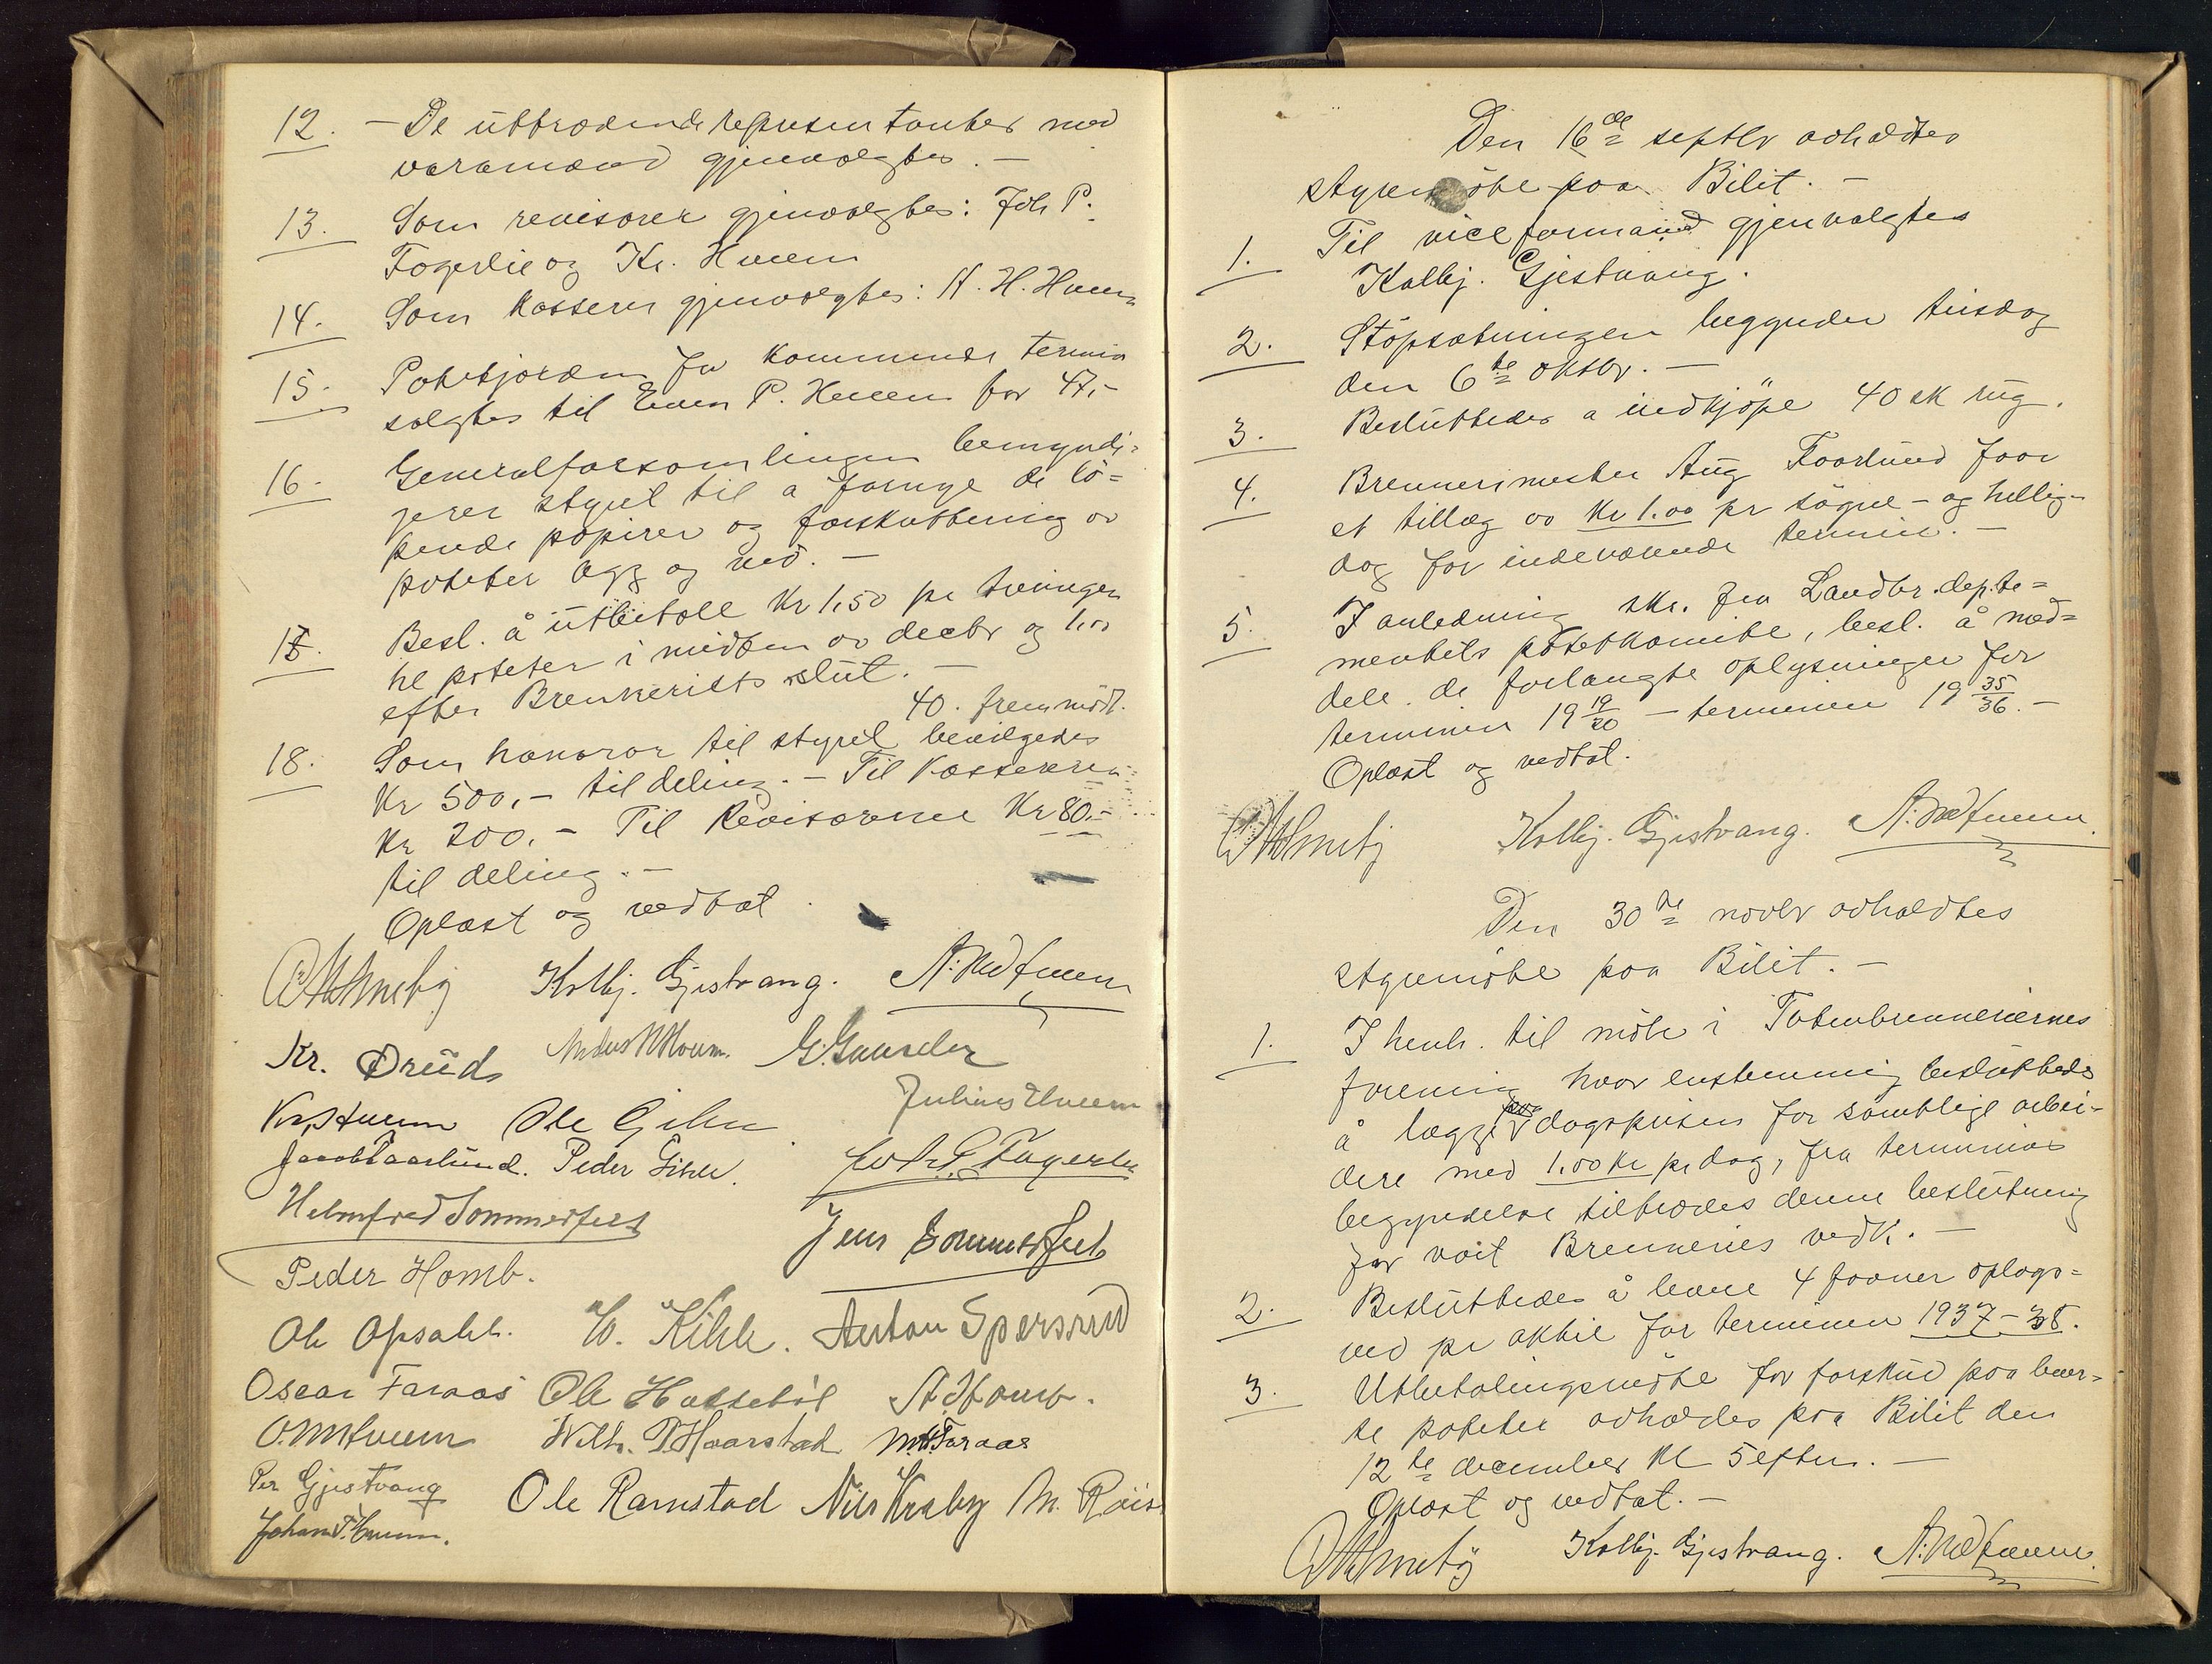 12. - De uttrædende representanter med
varamænd gjenvalgtes. -
13. Som revisorer gjenvalgtes: Joh P.
Fagerlie og Kr. Hveem
14. Som kasserer gjenvalgtes: H. H. Hveem
15. Potetjorden for kommende termin
solgtes til Even P. Hveem for 47,-
16. Generalforsamlingen bemyndi-
gerer styret til a fornye de lö-
pende papirer og forskuttering av
poteter bygg og ved. -
17. Besl. å utbetale Kr 1,50 pr tøningen
hl poteter i midten av decbr og 1.00
efter Brenneriets slut. -
40. fremmödt.
18. Som honorar til styret bevilgedes
Kr 500,- til deling. - Til Kassereren
Kr 200,- Til Revisorerne Kr 80.-
til deling. -
Oplæst og vedtat.
Kolbj. Gjestvang.
Kr. Drüds G. Gaarder
Julius Hveem
Kr. Hveem Ole Gihle
Jacob Paaslund. Peder Gihle. Joh. P. Fagerlie
Helmfred Sommerfelt
Jens Sommerfelt
Peder Homb.
Ole Opsahl. Kihle. Anton Spersrud
Oscar Faraas Ole Hasselöl A. Homb.
O. M. Hveem Wilh. P. Haarstad M. Faraas
Per Gjestvang
Ole Ramstad Nils Kraby M. Röis
Johan P. Hveem.
Den 16de septbr avholdtes
styremöte paa Bilit. -
1. Til viceformand gjenvalgtes
Kolbj. Gjestvang.
2. Stöpsætningen begynder tirsdag
den 6te oktbr. -
3. Besluttedes a indkjöpe 40 sk rug.
4. Brennerimester Aug Faarlund faar
et tillæg av Kr 1.00 pr sögne- og hellig-
dag for indeværende termin. -
5. I anledning skr. fra Landbr.dep.te-
mentets potetkomite, besl. å med-
dele de forlangte oplysninger for
terminen 19 19/20 - terminen 19 35/36. -
Oplæst og vedtat.
Kolbj. Gjestvang.
Den 30te novbr avholdtes
styremöte paa Bilit. -
1. I henh. til möte i Totenbrenneriernes
forening hvor enstemmig besluttedes
å lægge paa dagsprisen for samtlige arbei-
dere med 1.00 kr pr dag, fra terminens
begyndelse tiltrædes denne beslutning
for vort Brenneries vedk. -
2. Besluttedes å levere 4 favner oplags-
ved pr aktie for terminen 1937-38.
3. Utbetalingsmöte for forskud paa lever-
te poteter avholdes paa Bilit den
12te december kl 5 efterm. -
Oplæst og vedtat. -
Kolbj. Gjestvang.